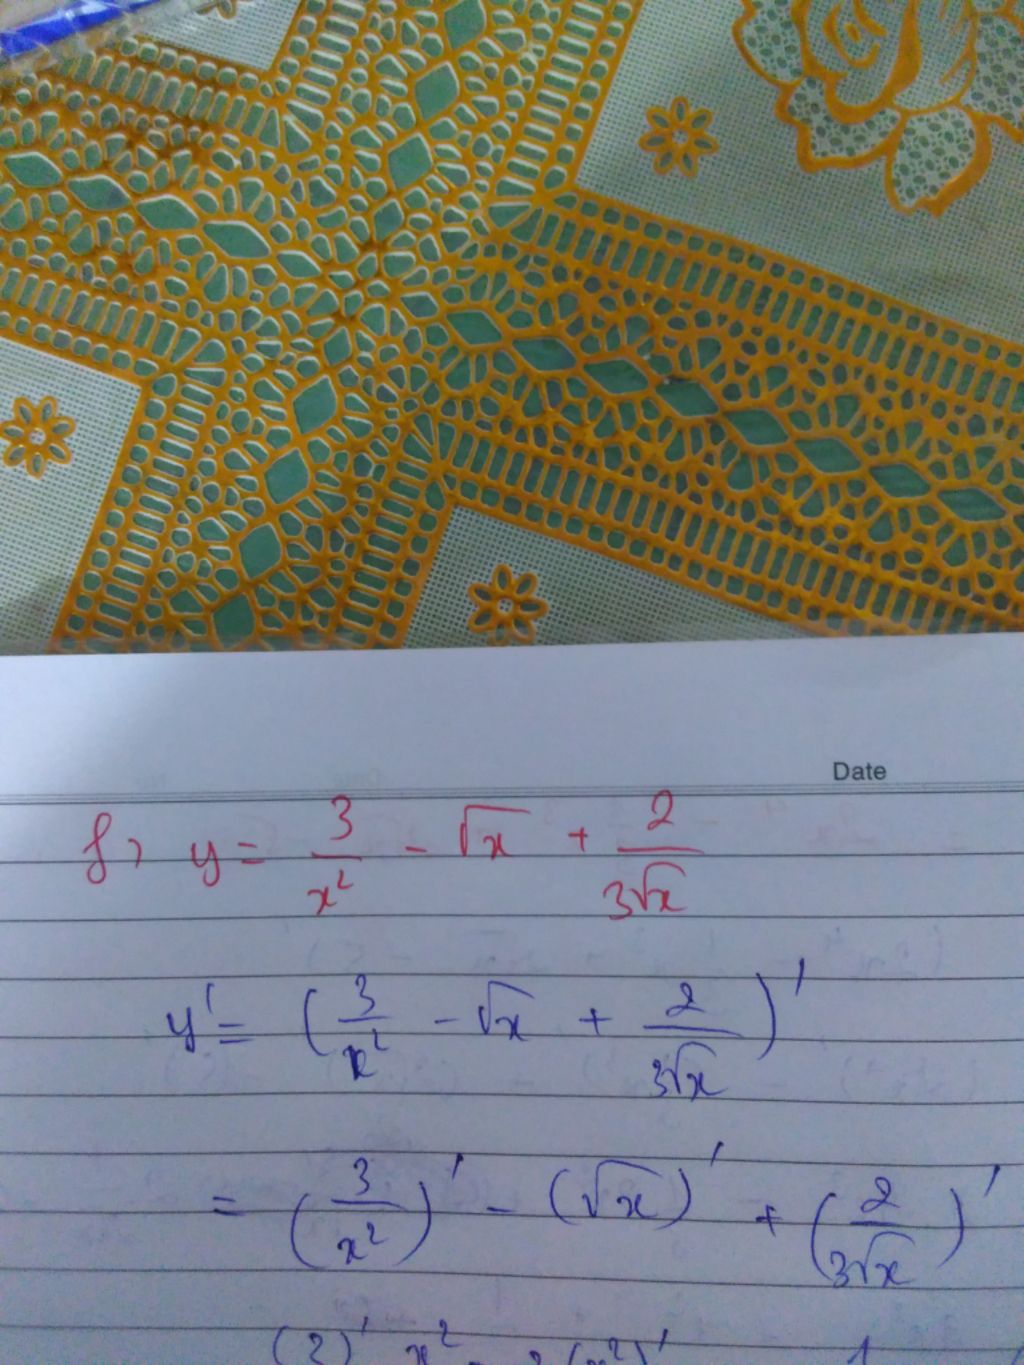 Date
f) y = 3/x² - √x + 2/3√x
y' = (3/x² - √x + 2/3√x)'
= (3/x²)' - (√x)' + (2/3√x)'
(3)' x² - 3(x²)'